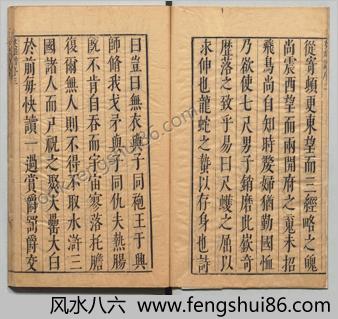 從寄頓更東望而三經略之魄
尚震西望而兩開府之魂未招
飛鳥尚自知時嫠婦猶勤國恤
乃欲使七尺男子銷磨此嶔奇
歷落之致乎易曰尺蠖之屈以
求伸也龍蛇之蟄以存身也詩
曰豈曰無衣與子同袍王于興
師脩我戈矛與子同仇夫熱腸
既不肯自吞而宇宙寥落托膽
復爾無人則不得不取水滸三
國諸人而尸祝之浮大罍大白
於前每快讀一過賞爵罰爵交
风水八六 www.fengshui86.com